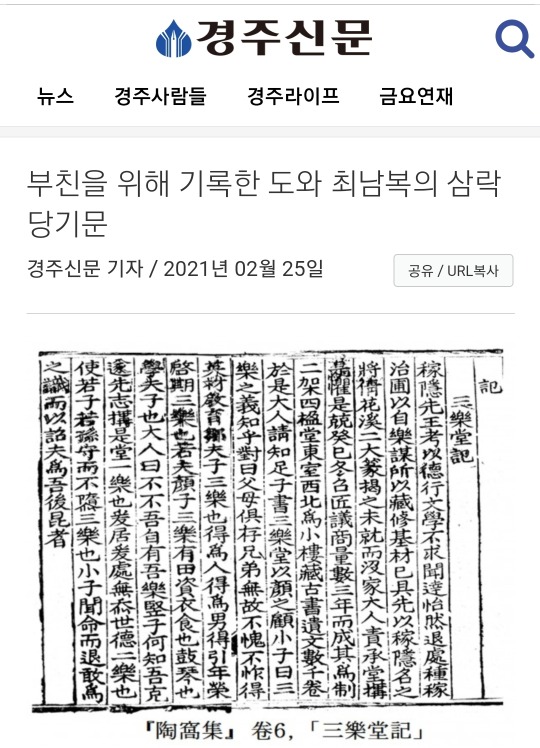 경주신문
뉴스 경주사람들 경주라이프 금요연재
부친을 위해 기록한 도와 최남복의 삼락
당기문
경주신문 기자 / 2021년 02월 25일
공유 / URL복사
記
三樂堂記
稼隱先王考以德行文學不求聞達怡然退處種稼
治圃以自樂謀所以藏修基材已具先以稼隱名之
將 花溪二大篆揭之未就而沒家大人責承堂搆
懼是兢癸巳冬召匠議商量數三年而成其爲制
二架四楹堂東室西北爲小樓藏古書遺文數千卷
於是大人請知足子書三樂堂以顔之顧小子曰三
樂之義知乎對曰父母俱存兄弟無故不愧不怍得
英 敎育鄒夫子三樂也得爲人得爲男得引年榮
啓期三樂也若夫顔子三樂有田資衣食也鼓琴也
學夫子也大人曰不不吾自有吾樂竪子何知吾克
遂先志搆是堂一樂也爰居爰處無忝世德二樂也
使若子若孫守而不隳三樂也小子聞命而退敢爲
之識而以詔夫爲吾後昆者
『陶窩集』 卷6, 「三樂堂記」